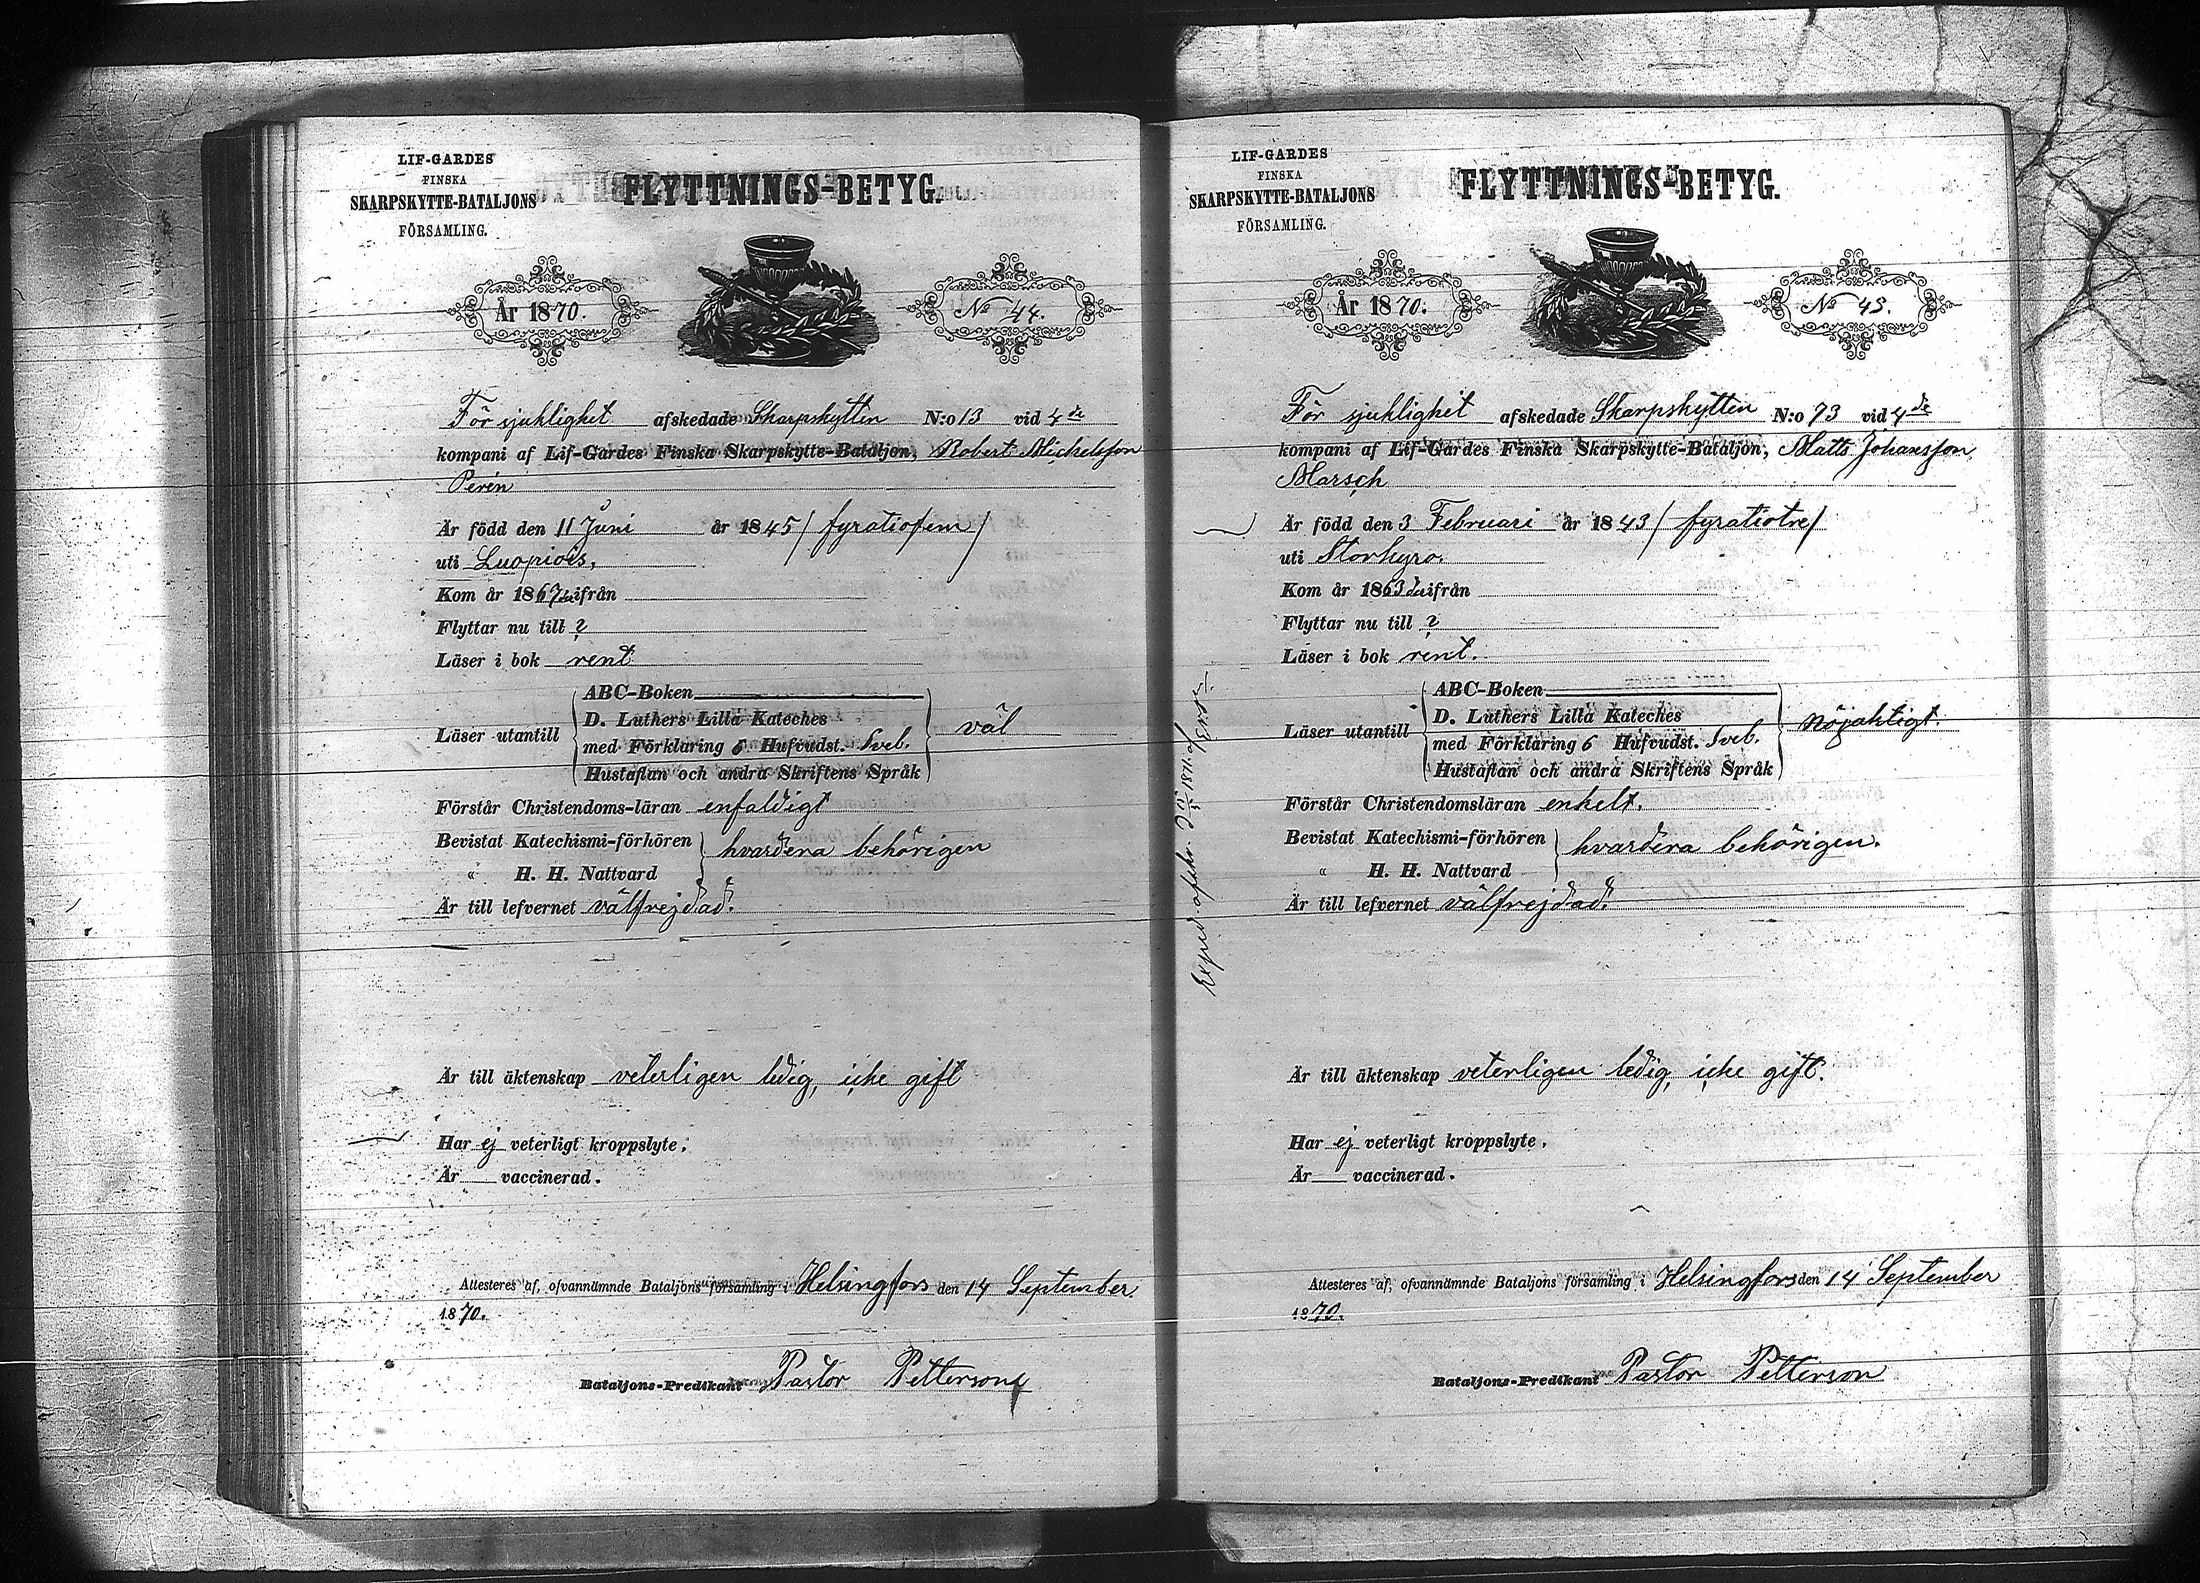 LIF-GARDES
FINSKA
SKARPSKYTTE-BATALJONS
FÖRSAMLING.
FLYTTNINGS-BETYG.
År 1870.
No 44.
För sjuklighet afskedade Skarpskytten N:o 13 vid 4de
kompani af Lif-Gardes Finska Skarpskytte-Bataljon, Robert Michelsson
Perén
Är född den 11 Juni år 1845 / fyratiofem /
uti Luopiois,
Kom år 1867 ifrån
Flyttar nu till ?
Läser i bok rent
Läser utantill
ABC-Boken
D. Luthers Lilla Kateches
med Förklaring 6 Hufvudst. Sveb.
Hustaflan och andra Skriftens Språk
väl
Förstår Christendoms-läran enfaldigt
Bevistat Katechismi-förhören
" H. H. Nattvard
hvardera behörigen
Är till lefvernet välfrejdad.
Är till äktenskap veterligen ledig, icke gift
Har ej veterligt kroppslyte.
Är vaccinerad.
Attesteres af, ofvannämnde Bataljons församling i Helsingfors den 14 September
1870.
Bataljons-Predikant Pastor Petterson
LIF-GARDES
FINSKA
SKARPSKYTTE-BATALJONS
FÖRSAMLING.
FLYTTNINGS-BETYG.
År 1870.
No 45.
För sjuklighet afskedade Skarpskytten N:o 73 vid 4de
kompani af Lif-Gardes Finska Skarpskytte-Bataljon, Matts Johansson
Marsch
Är född den 3 Februari år 1843 / fyratiotre /
uti Storkyro.
Kom år 1863 ifrån
Flyttar nu till ?
Läser i bok rent.
Läser utantill
ABC-Boken
D. Luthers Lilla Kateches
med Förklaring 6 Hufvudst. Sveb.
Hustaflan och andra Skriftens Språk
nöjaktigt.
Förstår Christendomsläran enkelt.
Bevistat Katechismi-förhören
" H. H. Nattvard
hvardera behörigen.
Är till lefvernet välfrejdad.
Är till äktenskap veterligen ledig, icke gift.
Har ej veterligt kroppslyte.
Är vaccinerad.
Attesteres af, ofvannämnde Bataljons församling i Helsingfors den 14 September
1870.
Bataljons-Predikant Pastor Petterson